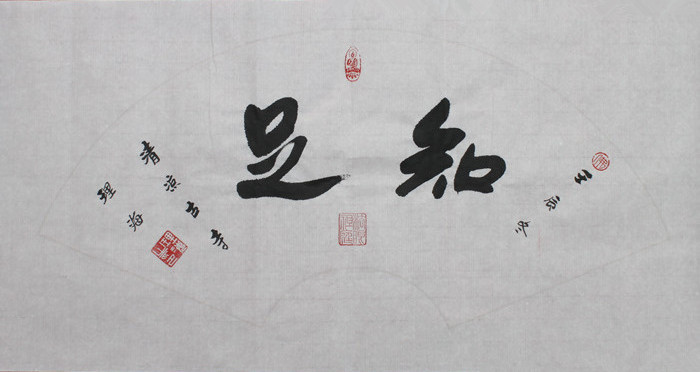 壬辰冬
知足
清凉古寺
理海